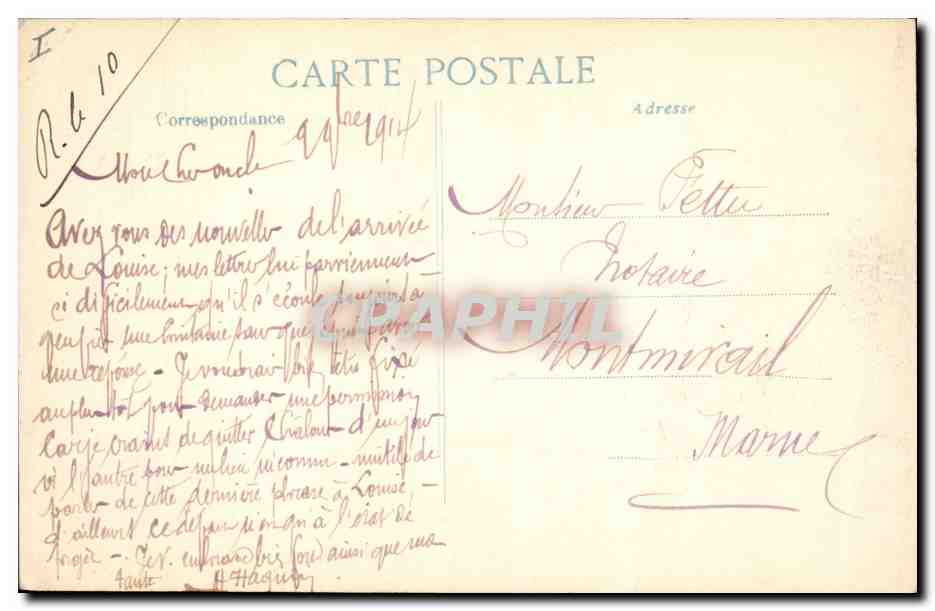 I
R. le 10
CARTE POSTALE
Correspondance
Adresse
9 9bre 1914
Mon cher oncle
Avez vous des nouvelles de l'arrivée
de Louise; mes lettres lui parviennent
si dificilement qu'il s'écoule toujours à
peu près une huitaine pour que
une réponse - Je voudrais bien être fixé
au plus tôt pour demander une permission
car je crains de quitter Châlons d'un jour
à l'autre pour un lieu inconnu - inutile de
parler de cette dernière phrase à Louise -
d'ailleurs ce départ n'est qu'à l'état de
projet - Je v. embrasse bien fort ainsi que ma
tante
Monsieur Pettu
Notaire
Montmirail
Marne
CRAPHIL